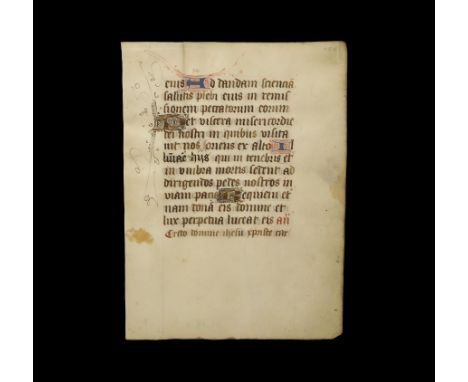 eius Ad dandam sciencia
salutis plebi eius in remis
sionem peccatorum eorum
Per viscera misericordie
dei nostri in quibus visita
uit nos oriens ex alto Il
lumīare hijs qui in tenebris et
in vmbra mortis sedent ad
dirigendos pedes nostros in
viam pacis Requiem et
nam donā eis domine et
lux perpetua luceat eis an̄
domine ihesu xpriste